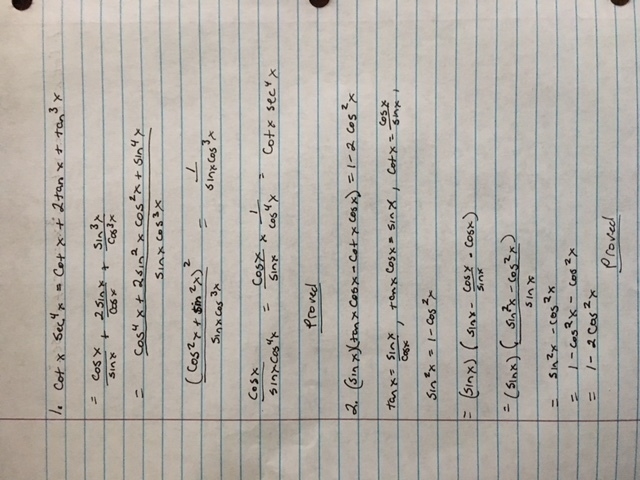 1. cot x sec⁴x = cot x + 2 tan x + tan³x
= cosx/sinx + 2sinx/cosx + sin³x/cos³x
= (cos⁴x + 2sin²x cos²x + sin⁴x)/(sinx cos³x)
(cos²x + sin²x)²/(sinx cos³x) = 1/(sinx cos³x)
cosx/(sinx cos⁴x) = cosx/sinx × 1/cos⁴x = cotx sec⁴x
Proved
2. (sinx)(tanx cosx - cotx cosx) = 1-2 cos²x
tanx = sinx/cosx, tanx cosx = sinx, cotx = cosx/sinx,
sin²x = 1 - cos²x
= (sinx)(sinx - cosx/sinx · cosx)
= (sinx)((sin²x - cos²x)/sinx)
= sin²x - cos²x
= 1 - cos²x - cos²x
= 1 - 2cos²x
Proved